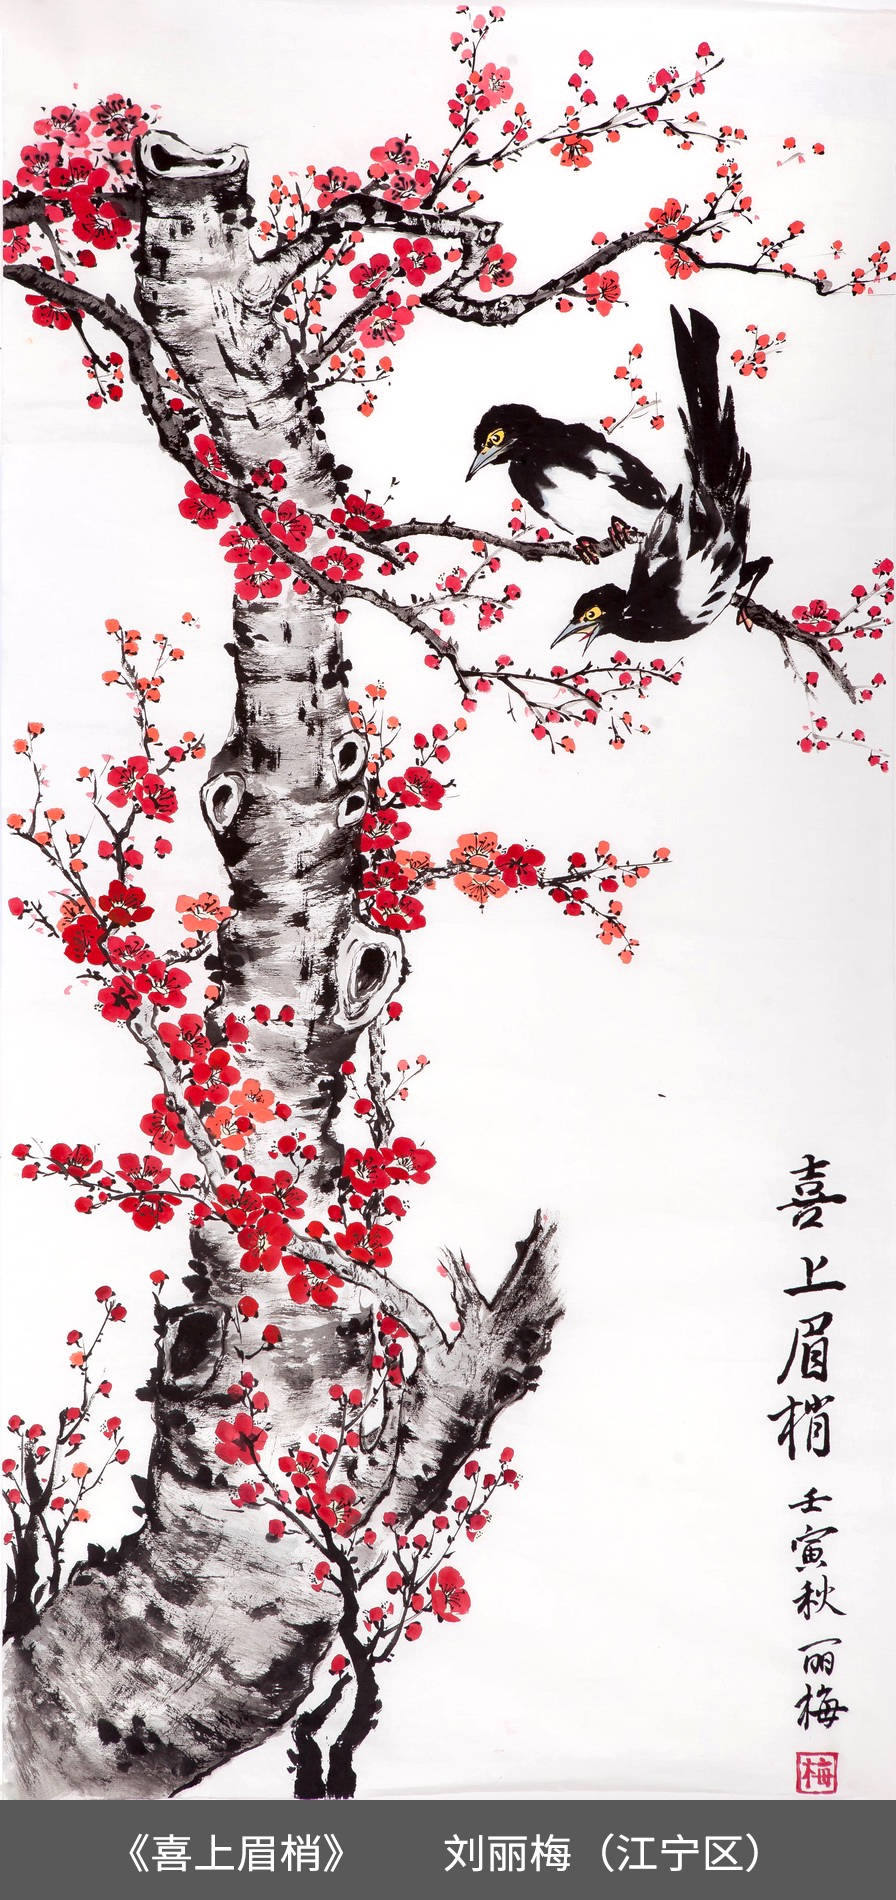 喜上眉梢
壬寅秋 丽梅
梅
《喜上眉梢》 刘丽梅（江宁区）